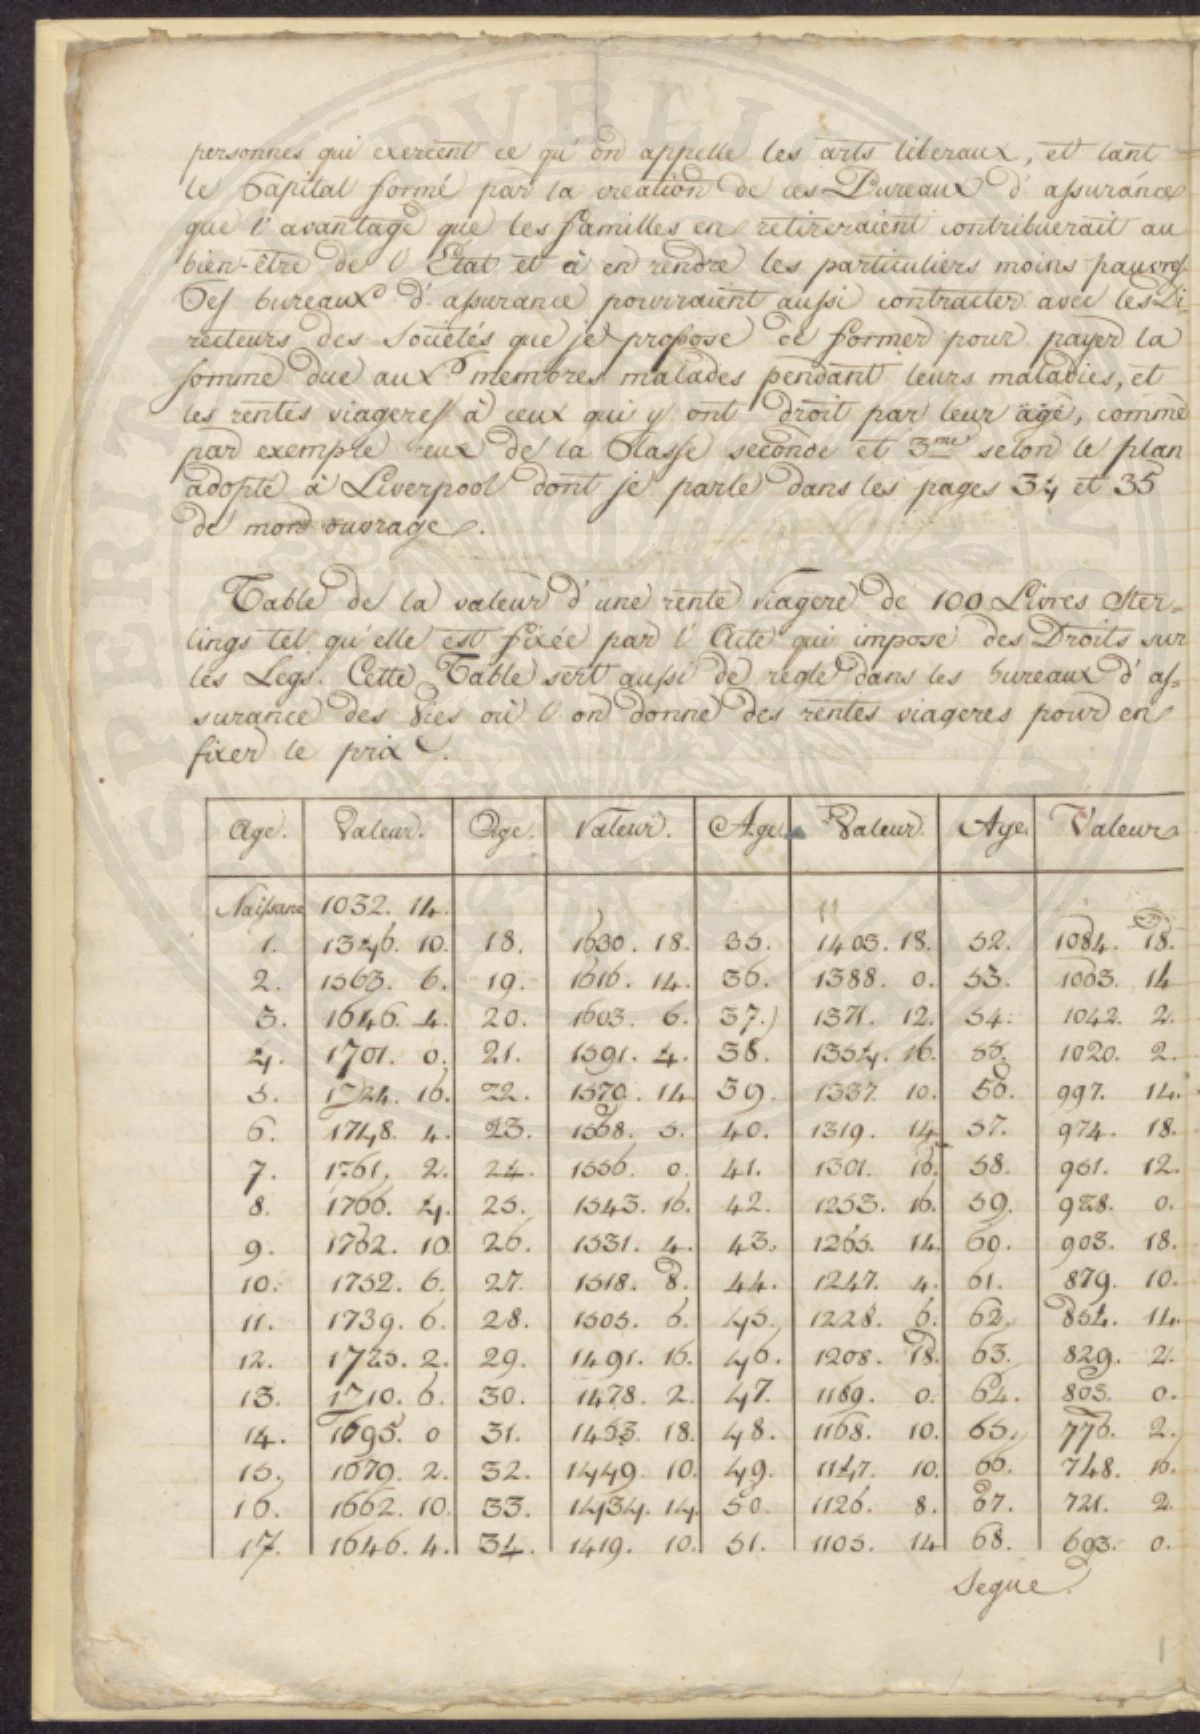 personnes qui exercent ce qu'on appelle les arts liberaux, et tant
le Capital formé par la creation de ces Bureaux d'assurance
que l'avantage que les familles en retireraient contribuerait au
bien-être de l'Etat et à en rendre les particuliers moins pauvres.
Ces bureaux d'assurance pourraient aussi contracter avec les Di-
recteurs des Societés que je propose de former pour payer la
somme due aux membres malades pendant leurs maladies, et
les rentes viageres à ceux qui y ont droit par leur âge, comme
par exemple ceux de la Classe seconde et 3me selon le plan
adopté à Liverpool dont je parle dans les pages 34 et 35
de mon ouvrage.
Table de la valeur d'une rente viagere de 100 Livres Ster-
lings tel qu'elle est fixée par l'Acte qui impose des Droits sur
les Legs. Cette Table sert aussi de regle dans les bureaux d'as-
surance des Vies où l'on donne des rentes viageres pour en
fixer le prix.
Age. Valeur. Age. Valeur. Age. Valeur. Age. Valeur
Naissance 1032. 14.
1. 1346. 10. 18. 1630. 18. 35. 1403. 18. 52. 1084. 18.
2. 1563. 6. 19. 1616. 14. 36. 1388. 0. 53. 1063. 14
3. 1646. 4. 20. 1603. 6. 37. 1371. 12. 54. 1042. 2.
4. 1701. 0. 21. 1591. 4. 38. 1354. 16. 55. 1020. 2.
5. 1724. 16. 22. 1570. 14 39. 1337. 10. 56. 997. 14.
6. 1748. 4. 23. 1568. 5. 40. 1319. 14 57. 974. 18.
7. 1761. 2. 24. 1556. 0. 41. 1301. 16. 58. 951. 12.
8. 1766. 4. 25. 1543. 16. 42. 1253. 16. 59. 928. 0.
9. 1762. 10 26. 1531. 4. 43. 1265. 14. 60. 903. 18.
10. 1752. 6. 27. 1518. 8. 44. 1247. 4. 61. 879. 10.
11. 1739. 6. 28. 1505. 6. 45. 1228. 6. 62. 854. 14.
12. 1725. 2. 29. 1491. 16. 46. 1208. 18. 63. 829. 2.
13. 1710. 6. 30. 1478. 2. 47. 1189. 0. 64. 803. 0.
14. 1695. 0 31. 1453. 18. 48. 1168. 10. 65. 776. 2.
15. 1679. 2. 32. 1449. 10. 49. 1147. 10. 66. 748. 16.
16. 1662. 10. 33. 1434. 14. 50. 1126. 8. 67. 721. 2.
17. 1646. 4. 34. 1419. 10. 51. 1105. 14 68. 693. 0.
Segue